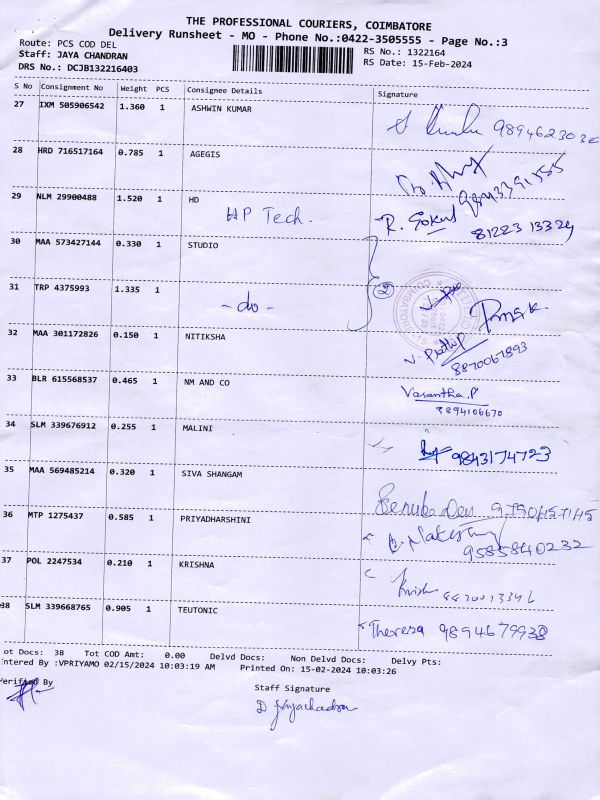 THE PROFESSIONAL COURIERS, COIMBATORE
Delivery Runsheet - MO - Phone No.:0422-3505555 - Page No.:3
Route: PCS COD DEL
RS No.: 1322164
Staff: JAYA CHANDRAN
RS Date: 15-Feb-2024
DRS No.: DCJB132216403
S No Consignment No Weight PCS Consignee Details Signature
27 IXM 505906542 1.360 1 ASHWIN KUMAR
28 HRD 716517164 0.785 1 AGEGIS
29 NLM 29900488 1.520 1 HD
HP Tech. R. Gokul
81223 13324
30 MAA 573427144 0.330 1 STUDIO
31 TRP 4375993 1.335 1
- do - 2
32 MAA 301172826 0.150 1 NITIKSHA
8870067893
33 BLR 615568537 0.465 1 NM AND CO
Vasantha.P
8894106670
34 SLM 339676912 0.255 1 MALINI
9843174723
35 MAA 569485214 0.320 1 SIVA SHANGAM
36 MTP 1275437 0.585 1 PRIYADHARSHINI
9585840232
37 POL 2247534 0.210 1 KRISHNA
38 SLM 339668765 0.905 1 TEUTONIC
Theresa 9894679938
ot Docs: 38 Tot COD Amt: 0.00 Delvd Docs: Non Delvd Docs: Delvy Pts:
ntered By :VPRIYAMO 02/15/2024 10:03:19 AM Printed On: 15-02-2024 10:03:26
Verified By
Staff Signature